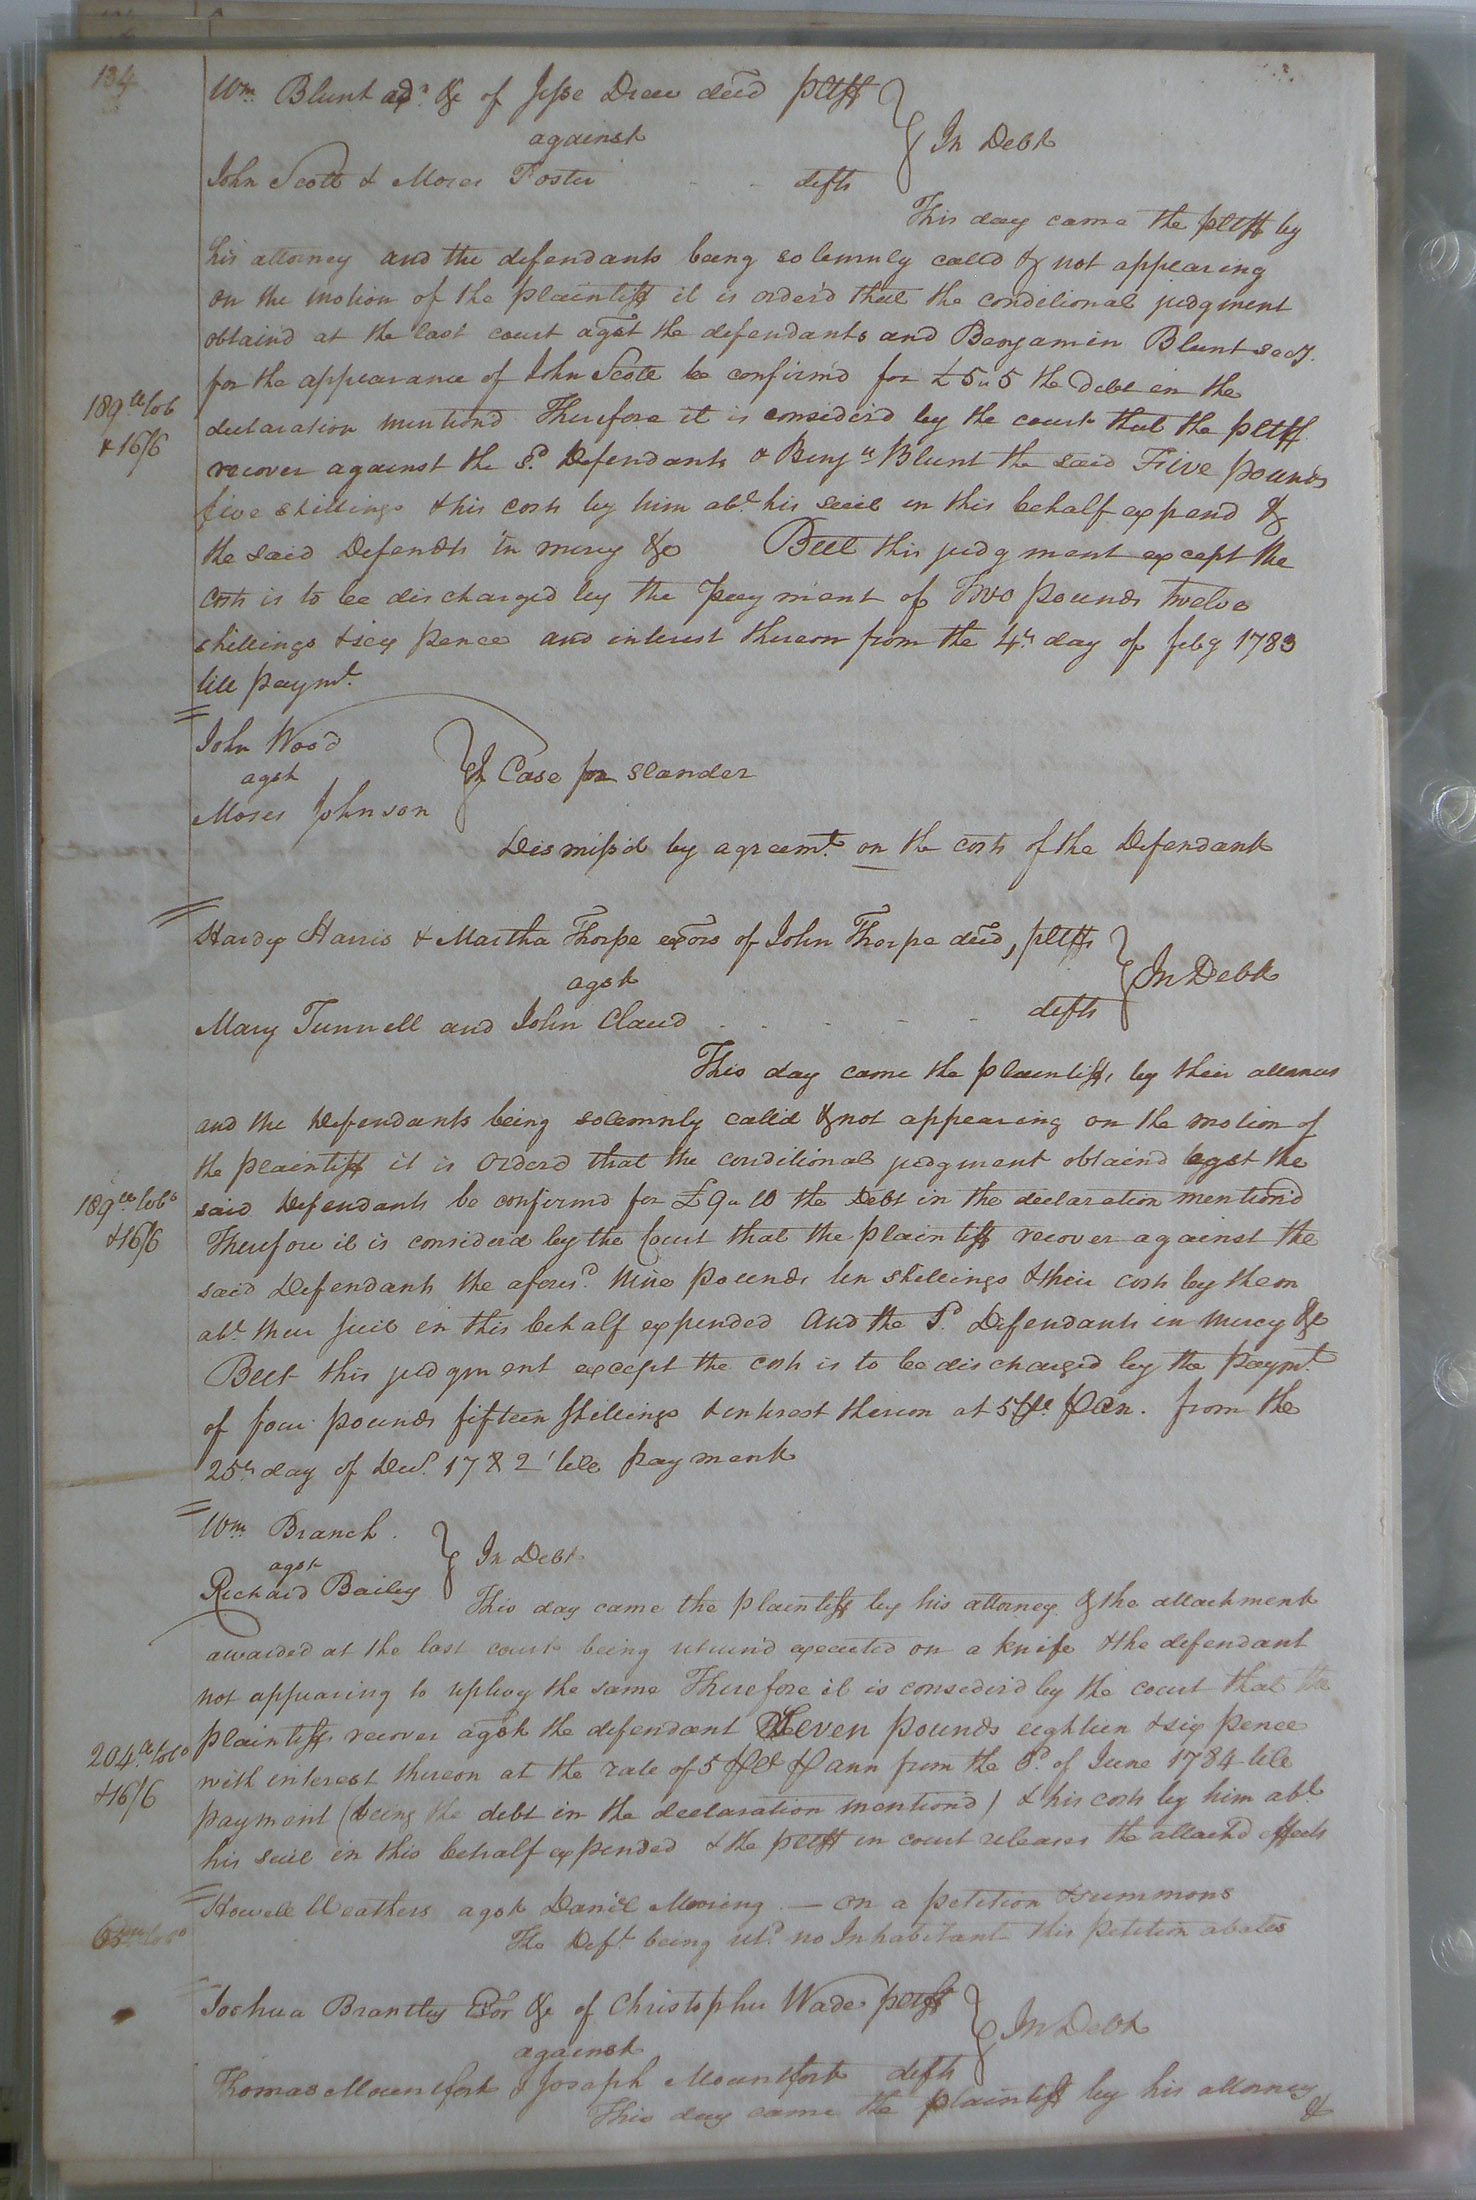 134
Wm. Blunt adr. &c of Jesse Drew decd pltff
against
In Debt
John Scott & Moses Foster - - defts
This day came the pltff by
his attorney and the defendants being solemnly calld & not appearing
on the motion of the plaintiff it is orderd that the conditional judgment
obtaind at the last court agst the defendants and Benjamin Blunt secy.
for the appearance of John Scott be confirmd for £5"5 the Debt in the
189 lb tob
& 16/6
declaration mentiond Therefore it is considerd by the court that the pltff
recover against the sd. Defendants & Benja Blunt the said Five pounds
five shillings & his costs by him abt. his suit in this behalf expend &
the said Defendts in mercy &c But this judgment except the
costs is to be discharged by the payment of Two pounds twelve
shillings & six pence and interest thereon from the 4th day of feby 1783
till paymt.
John Wood
agst
In Case for slander
Moses Johnson
Dismiss'd by agreemt. on the costs of the Defendant
Hardy Harris & Martha Thorpe exors of John Thorpe decd, pltffs
agst
In Debt
Mary Tunnell and John Claud - - - - - defts
This day came the plaintiffs by their
and the Defendants being solemnly calld & not appearing on the motion of
the plaintiff it is Orderd that the conditional judgment obtaind agst the
189 lb tobo
& 16/6
said Defendants be confirmd for £9"10 the Debt in the declaration mentiond
Therefore it is considerd by the Court that the plaintiff recover against the
said Defendants the aforesd. Nine pounds ten shillings & their costs by them
abt. their suit in this behalf expended And the Sd. Defendants in mercy &c
But this judgment except the costs is to be discharged by the Paymt.
of four pounds fifteen shillings & interest thereon at 5 Pr Ct. P An. from the
25th day of Decr. 1782 till payment
Wm. Branch
agst
In Debt
Richard Bailey
This day came the plaintiff by his attorney & the attachment
awarded at the last court being returnd executed on a knife & the defendant
not appearing to replevy the same Therefore it is considerd by the court that the
204 lb tobo
& 16/6
plaintiff recover agst the defendant Eleven pounds eighteen & six pence
with interest thereon at the rate of 5 P Ct P ann from the of June 1784 till
payment (being the debt in the declaration mentiond) & his costs by him abt.
his suit in this behalf expended & the pltff in court releases the attachd effects
Howell Weathers agst Daniel Mooring — on a petition & summons
The Deft. being retd. no Inhabitant this petition abates
Joshua Brantley Exor &c of Christopher Wade pltff
against
In Debt
Thomas Mountfort & Joseph Mountfort defts
This day came the plaintiff by his attorney
&